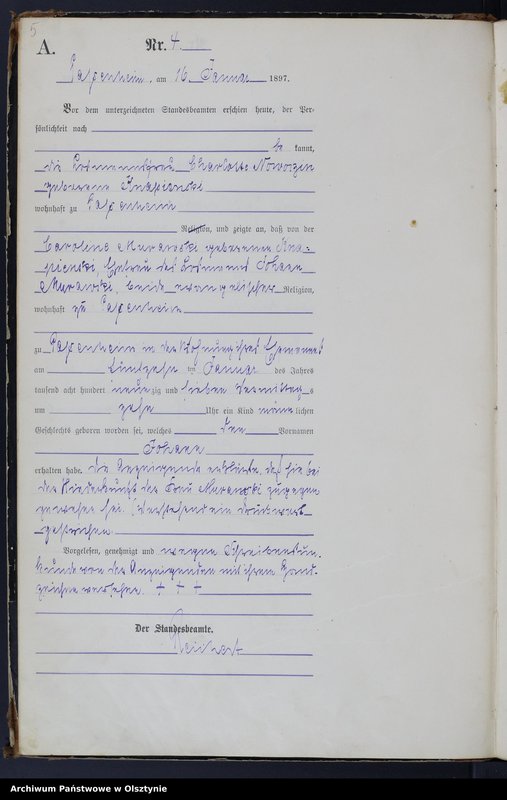 5
A.
Nr. 4.
am 16. Januar 1897.
Vor dem unterzeichneten Standesbeamten erschien heute, der Per-
sönlichkeit nach
be kannt,
die Losmannsfrau Charlotte
geborene
wohnhaft zu
Religion, und zeigte an, daß von der
Caroline Murawski geborenen
Ehefrau des Losmanns Johann
Murawski, beide evangelischer Religion,
wohnhaft zu
zu in der Wohnung ihres Ehemannes
am fünfzehn ten Januar des Jahres
tausend acht hundert neun zig und sieben Vormittags
um zehn Uhr ein Kind männlichen
Geschlechts geboren worden sei, welches den Vornamen
Johann
erhalten habe. Die Anzeigende erklärte, daß sie bei
der Niederkunft der Frau Murawski zugegen
gewesen sei. Vorstehend ein Druckwort
gestrichen.
Vorgelesen, genehmigt und wegen Schreibensun-
kunde von der Anzeigenden mit ihrem Hand-
zeichen versehen. + + +
Der Standesbeamte.
Reichert
Archiwum Państwowe w Olsztynie